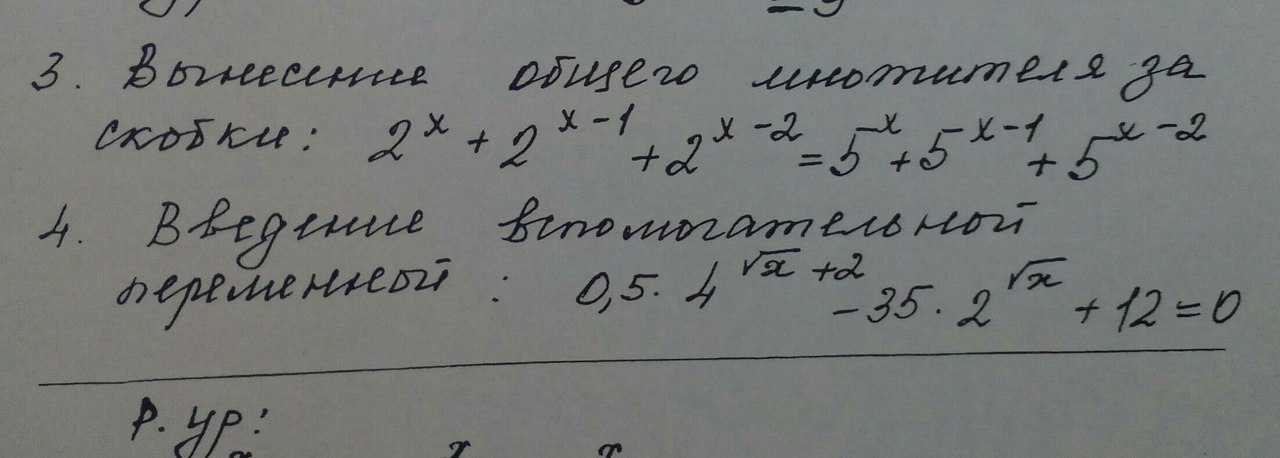 3. Вынесение общего множителя за
скобки: 2^x + 2^{x-1} + 2^{x-2} = 5^x + 5^{x-1} + 5^{x-2}
4. Введение вспомогательной
переменной: 0,5 · 4^{√x + 2} - 35 · 2^{√x} + 12 = 0
Р. ур: